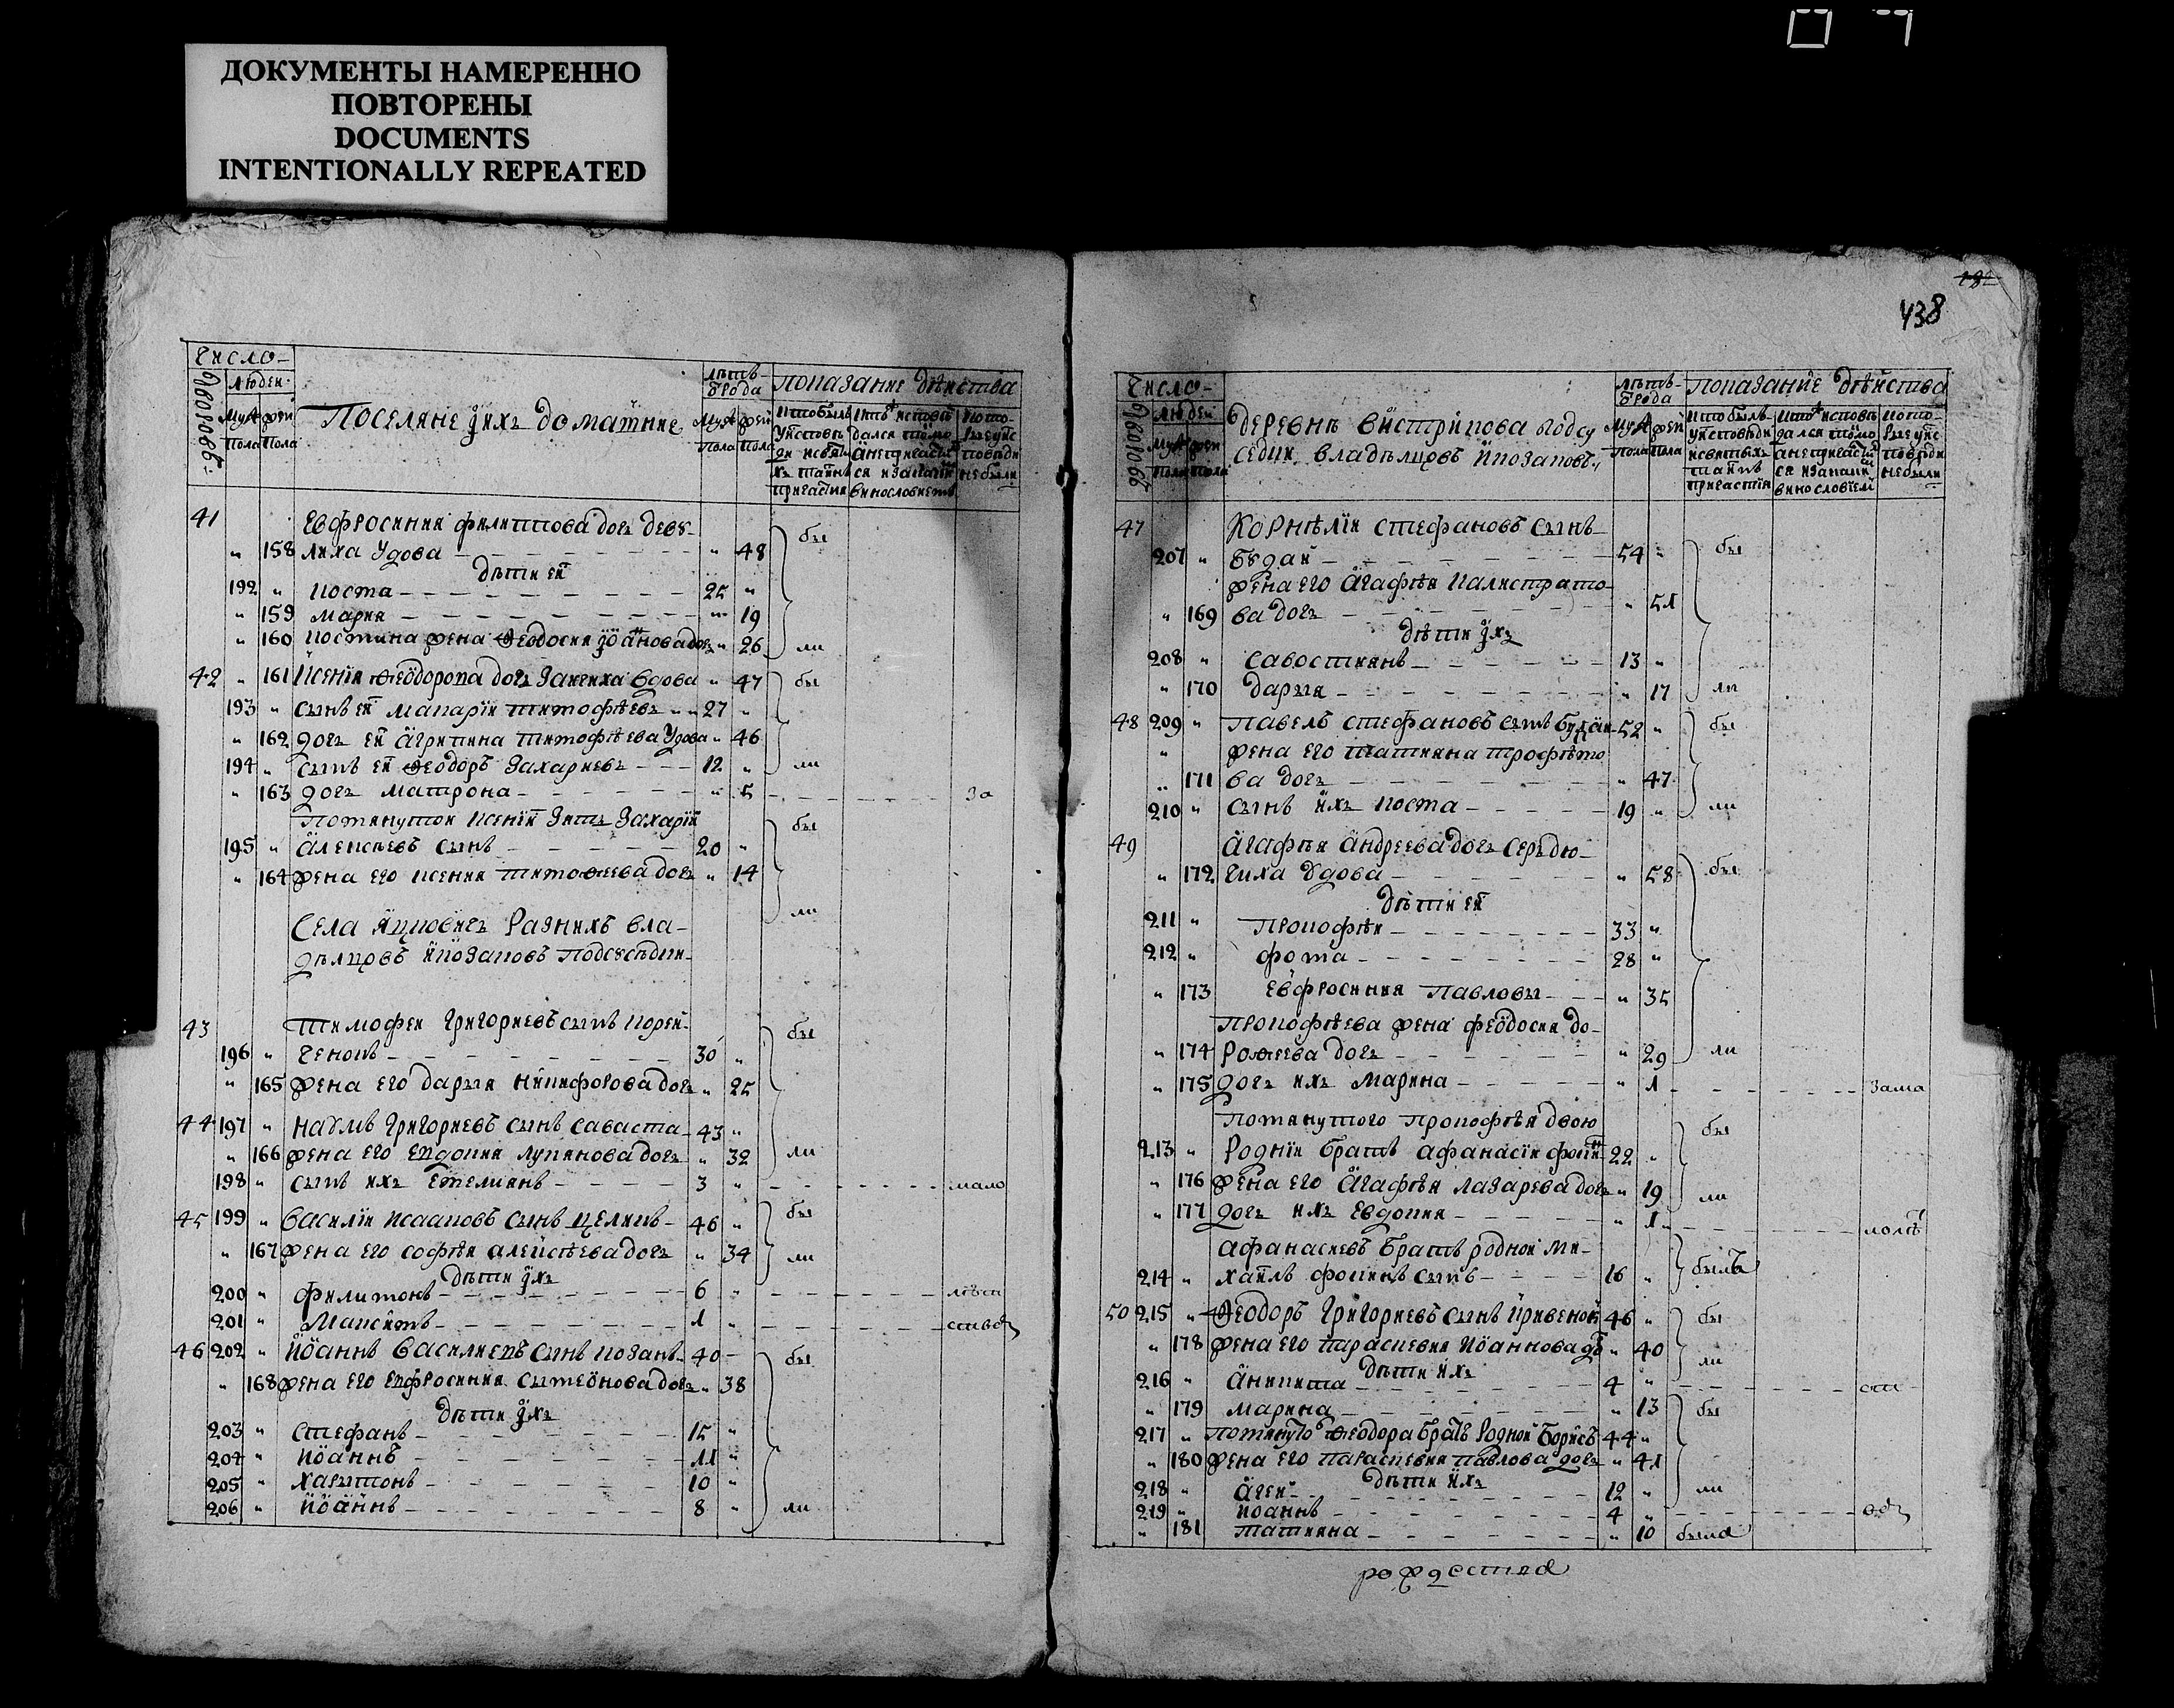 ДОКУМЕНТЫ НАМЕРЕННО
ПОВТОРЕНЫ
DOCUMENTS
INTENTIONALLY REPEATED
438
Число
дворовъ
людей
Муж пола
жен пола
Поселяне и ихъ домашние
лѣтъ
ѿрода
Муж пола
жен пола
показание дѣйства
41
Евфросиния филиппова дочь
" 158 лиха удова " 48 бы
дѣти ей
192 " коста 25 "
" 159 мария " 19
" 160 костина жена Ѳеодосия иоанова дочь " 26 ли
42 " 161 Ксения Ѳеодорова дочь вдова " 47 бы
193 " сынъ ей макарий тимофѣевъ 27 "
" 162 дочь ей агрипина тимофѣева удова " 46
194 " сынъ ей Ѳеодоръ захариевъ 12 " ли
" 163 дочь матрона " 5 за
помянутой ксении зять захарий бы
195 " алексѣевъ сынъ 20 "
" 164 жена его ксения тимоѳеева дочь " 14 ли
Села яцковичъ разнихъ вла-
дѣлцовъ и козаковъ подсусѣдки
43 тимофей григориевъ сынъ корей- бы
196 " ченокъ 30 "
" 165 жена его дария никифорова дочь " 25
44 197 " наумъ григориевъ сынъ саваста 43 "
" 166 жена его евдокия лукянова дочь " 32 ли
198 " сынъ ихъ емелиянъ 3 " мало
45 199 " василий исааковъ сынъ целикъ 46 " бы
" 167 жена его софѣя алексѣева дочь " 34 ли
дѣти ихъ
200 " филимонъ 6 " лѣт
201 " Максимъ 1 " ством
46 202 " Иоаннъ василиевъ сынъ козакъ 40 бы
" 168 жена его евфросиния симеонова дочь " 38
дѣти ихъ
203 " стефанъ 15 "
204 " иоаннъ 11 "
205 " харитонъ 10 "
206 " иоаннъ 8 " ли
Число
дворовъ
людей
Муж пола
жен пола
деревнѣ бистрикова подсу
седки владѣлцовъ и козаковъ
лѣтъ
ѿрода
Муж пола
жен пола
показание дѣйства
47 Корнѣлий стефановъ сынъ
207 " будай 54 " бы
жена его агафѣя калистрато-
" 169 ва дочь " 51
дѣти ихъ
208 " савостиянъ 13 "
" 170 дария " 17 ли
48 209 " павелъ стефановъ сынъ будай 52 " бы
" жена его татияна трофѣмо
" 171 ва дочь " 47
210 " сынъ ихъ коста 19 " ли
49 агафѣя андреева дочь сердю-
" 172 чиха удова " 58 бы
дѣти ей
211 " прокофѣй 33 "
212 " фома 28 "
" 173 евфросиния павловы " 35
прокофѣева жена феодосия до-
" 174 рофеева дочь " 29 ли
" 175 дочь ихъ марина " 1 зама
помянутого прокофѣя двою
213 " родний братъ афанасий фомин 22 " бы
" 176 жена его агафѣя лазарева дочь " 19 ли
" 177 дочь ихъ евдокия " 1 лолѣт
афанасиевъ братъ родной ми-
214 " хаилъ фоминъ сынъ 16 " былъ
50 215 " Ѳеодоръ григориевъ сынъ кривеной 46 " бы
" 178 жена его параскевия иоаннова д " 40 ли
дѣти ихъ
216 " аникита 4 " ств
" 179 марина " 13 бы
217 " помянуто Ѳеодора братъ родной борисъ 44 "
" 180 жена его параскевия павлова дочь " 41
дѣти ихъ
218 " агей 12 " ли
219 " иоаннъ 4 "
" 181 татияна " 10 была
рождества